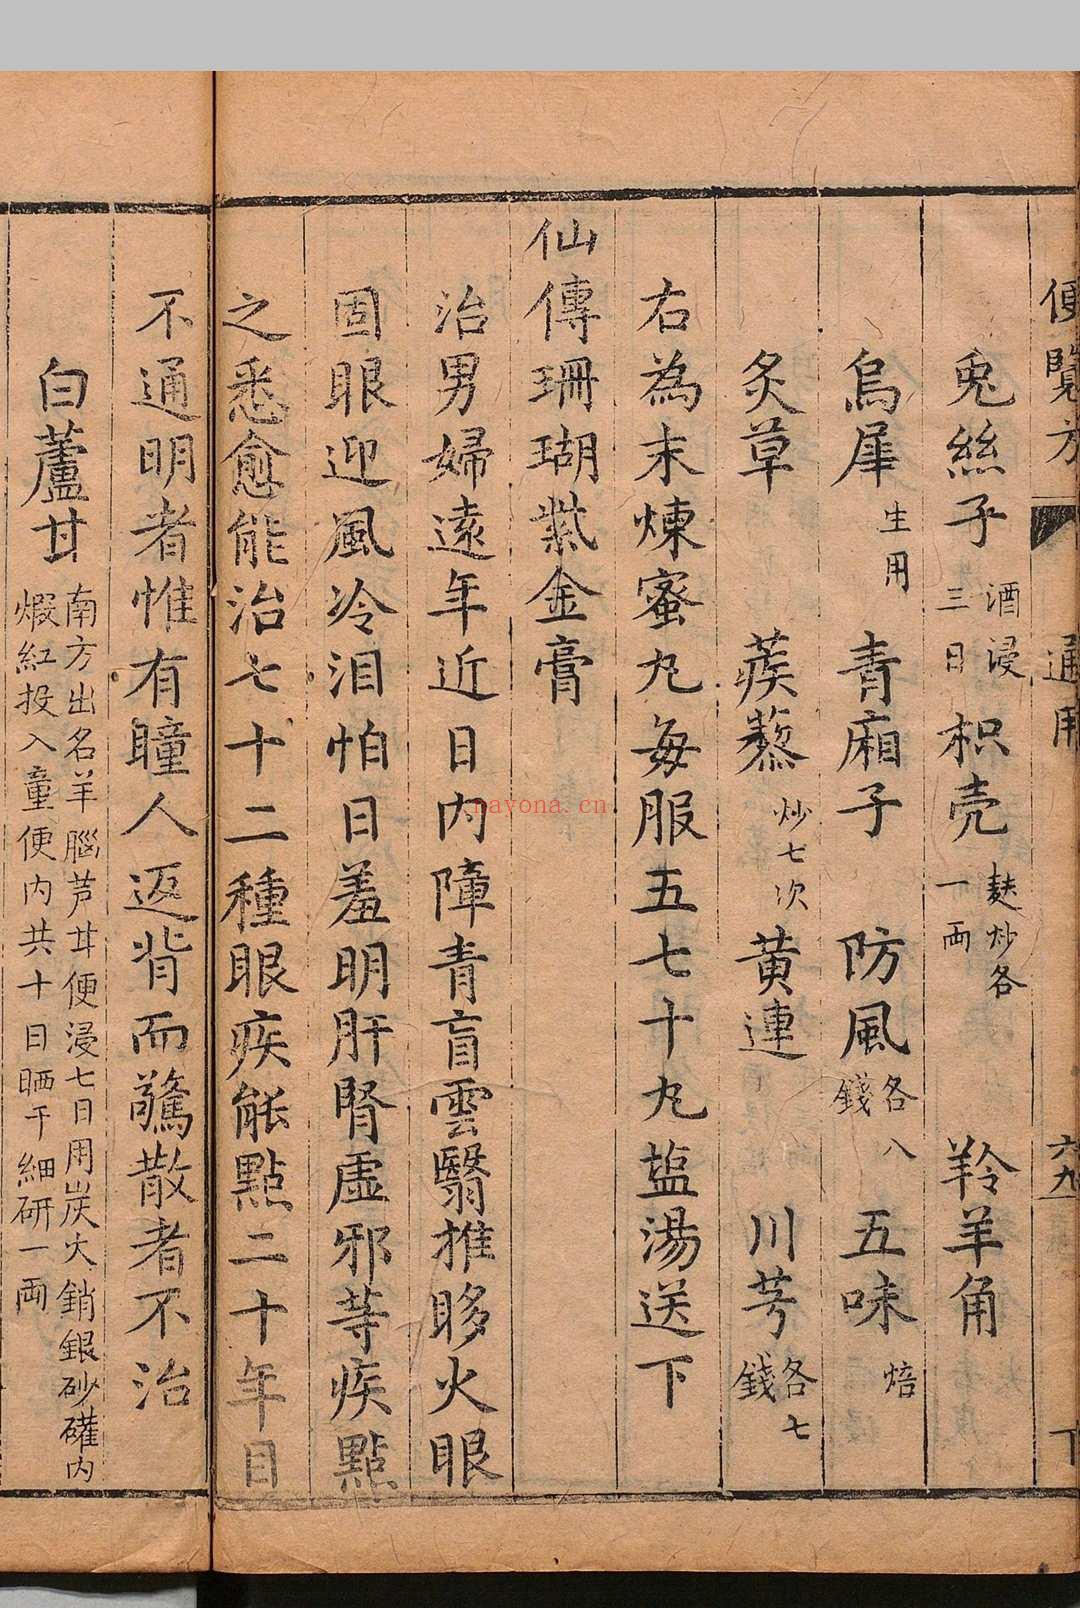 便覽方 通用 六九 下
兎絲子 酒浸三日 枳壳 麸炒各一两 羚羊角
烏犀 生用 青廂子 防風 各八錢 五味 焙
炙草 蒺藜 炒七次 黄連 川芎 各七錢
右為末煉蜜丸每服五七十丸盐湯送下
仙傳珊瑚紫金膏
治男婦遠年近日内障青盲雲翳推眵火眼
固眼迎風冷泪怕日羞明肝腎虛邪等疾點
之悉愈能治七十二種眼疾能點二十年目
不通明者惟有瞳人返背而驚散者不治
白蘆甘 南方出名羊腦芦甘便浸七日用炭火銷銀砂礶内煅紅投入童便内共十日晒干細研一両
nayona.cn